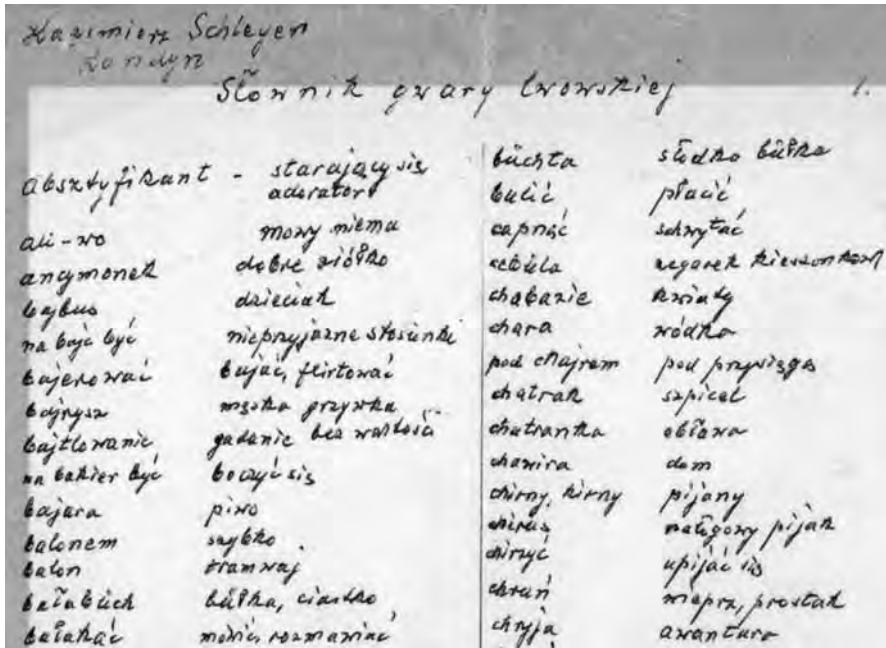 Kazimierz Schleyen
Londyn
Słownik gwary lwowskiej 1.
absztyfikant - starający się,
adorator
ali-wo mowy niema
ancymonek dobre ziółko
bajbus dzieciak
na baje być nieprzyjazne stosunki
bajerować bujać, flirtować
bajrysz męska grzywka
bajtlowanie gadanie bez wartości
na bakier być boczyć się
bajura piwo
balonem szybko
balon tramwaj
bałabuch bułka, ciastko
bałakać mówić, rozmawiać
buchta słodka bułka
bulić płacić
capnąć schwytać
cebula zegarek kieszonkowy
chabazie kwiaty
chara wódka
pod chajrem pod przysięgą
chatrak szpicel
chatranka obława
chawira dom
chirny, kirny pijany
chirus nałogowy pijak
chirzyć upijać się
chruń wieprz, prostak
chryja awantura